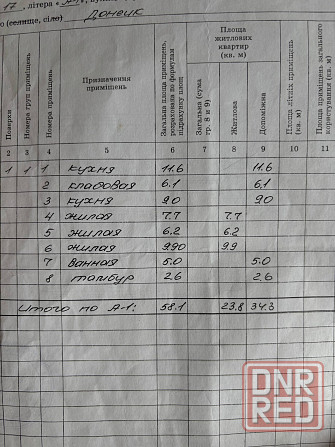 17, літера «А-1»,
о (селище, село) Донецк
Поверхи
Номера груп приміщень
Номера приміщень
Призначення приміщень
Загальна площа приміщень, розрахована по формулам підрахунку площ
Площа житлових квартир (кв. м)
Загальна (сума гр. 8 и 9)
Житлова
Допоміжна
Площа літніх приміщень (кв. м)
Площа приміщень загального користування (кв. м)
2 3 4 5 6 7 8 9 10 11
1 1 1 кухня 11.6 11.6
2 кладовая 6.1 6.1
3 кухня 9.0 9.0
4 жилая 7.7 7.7
5 жилая 6.2 6.2
6 жилая 9.90 9.9
7 ванная 5.0 5.0
8 тамбур 2.6 2.6
Итого по А-1: 58.1 23.8 34.3
DNR
RED